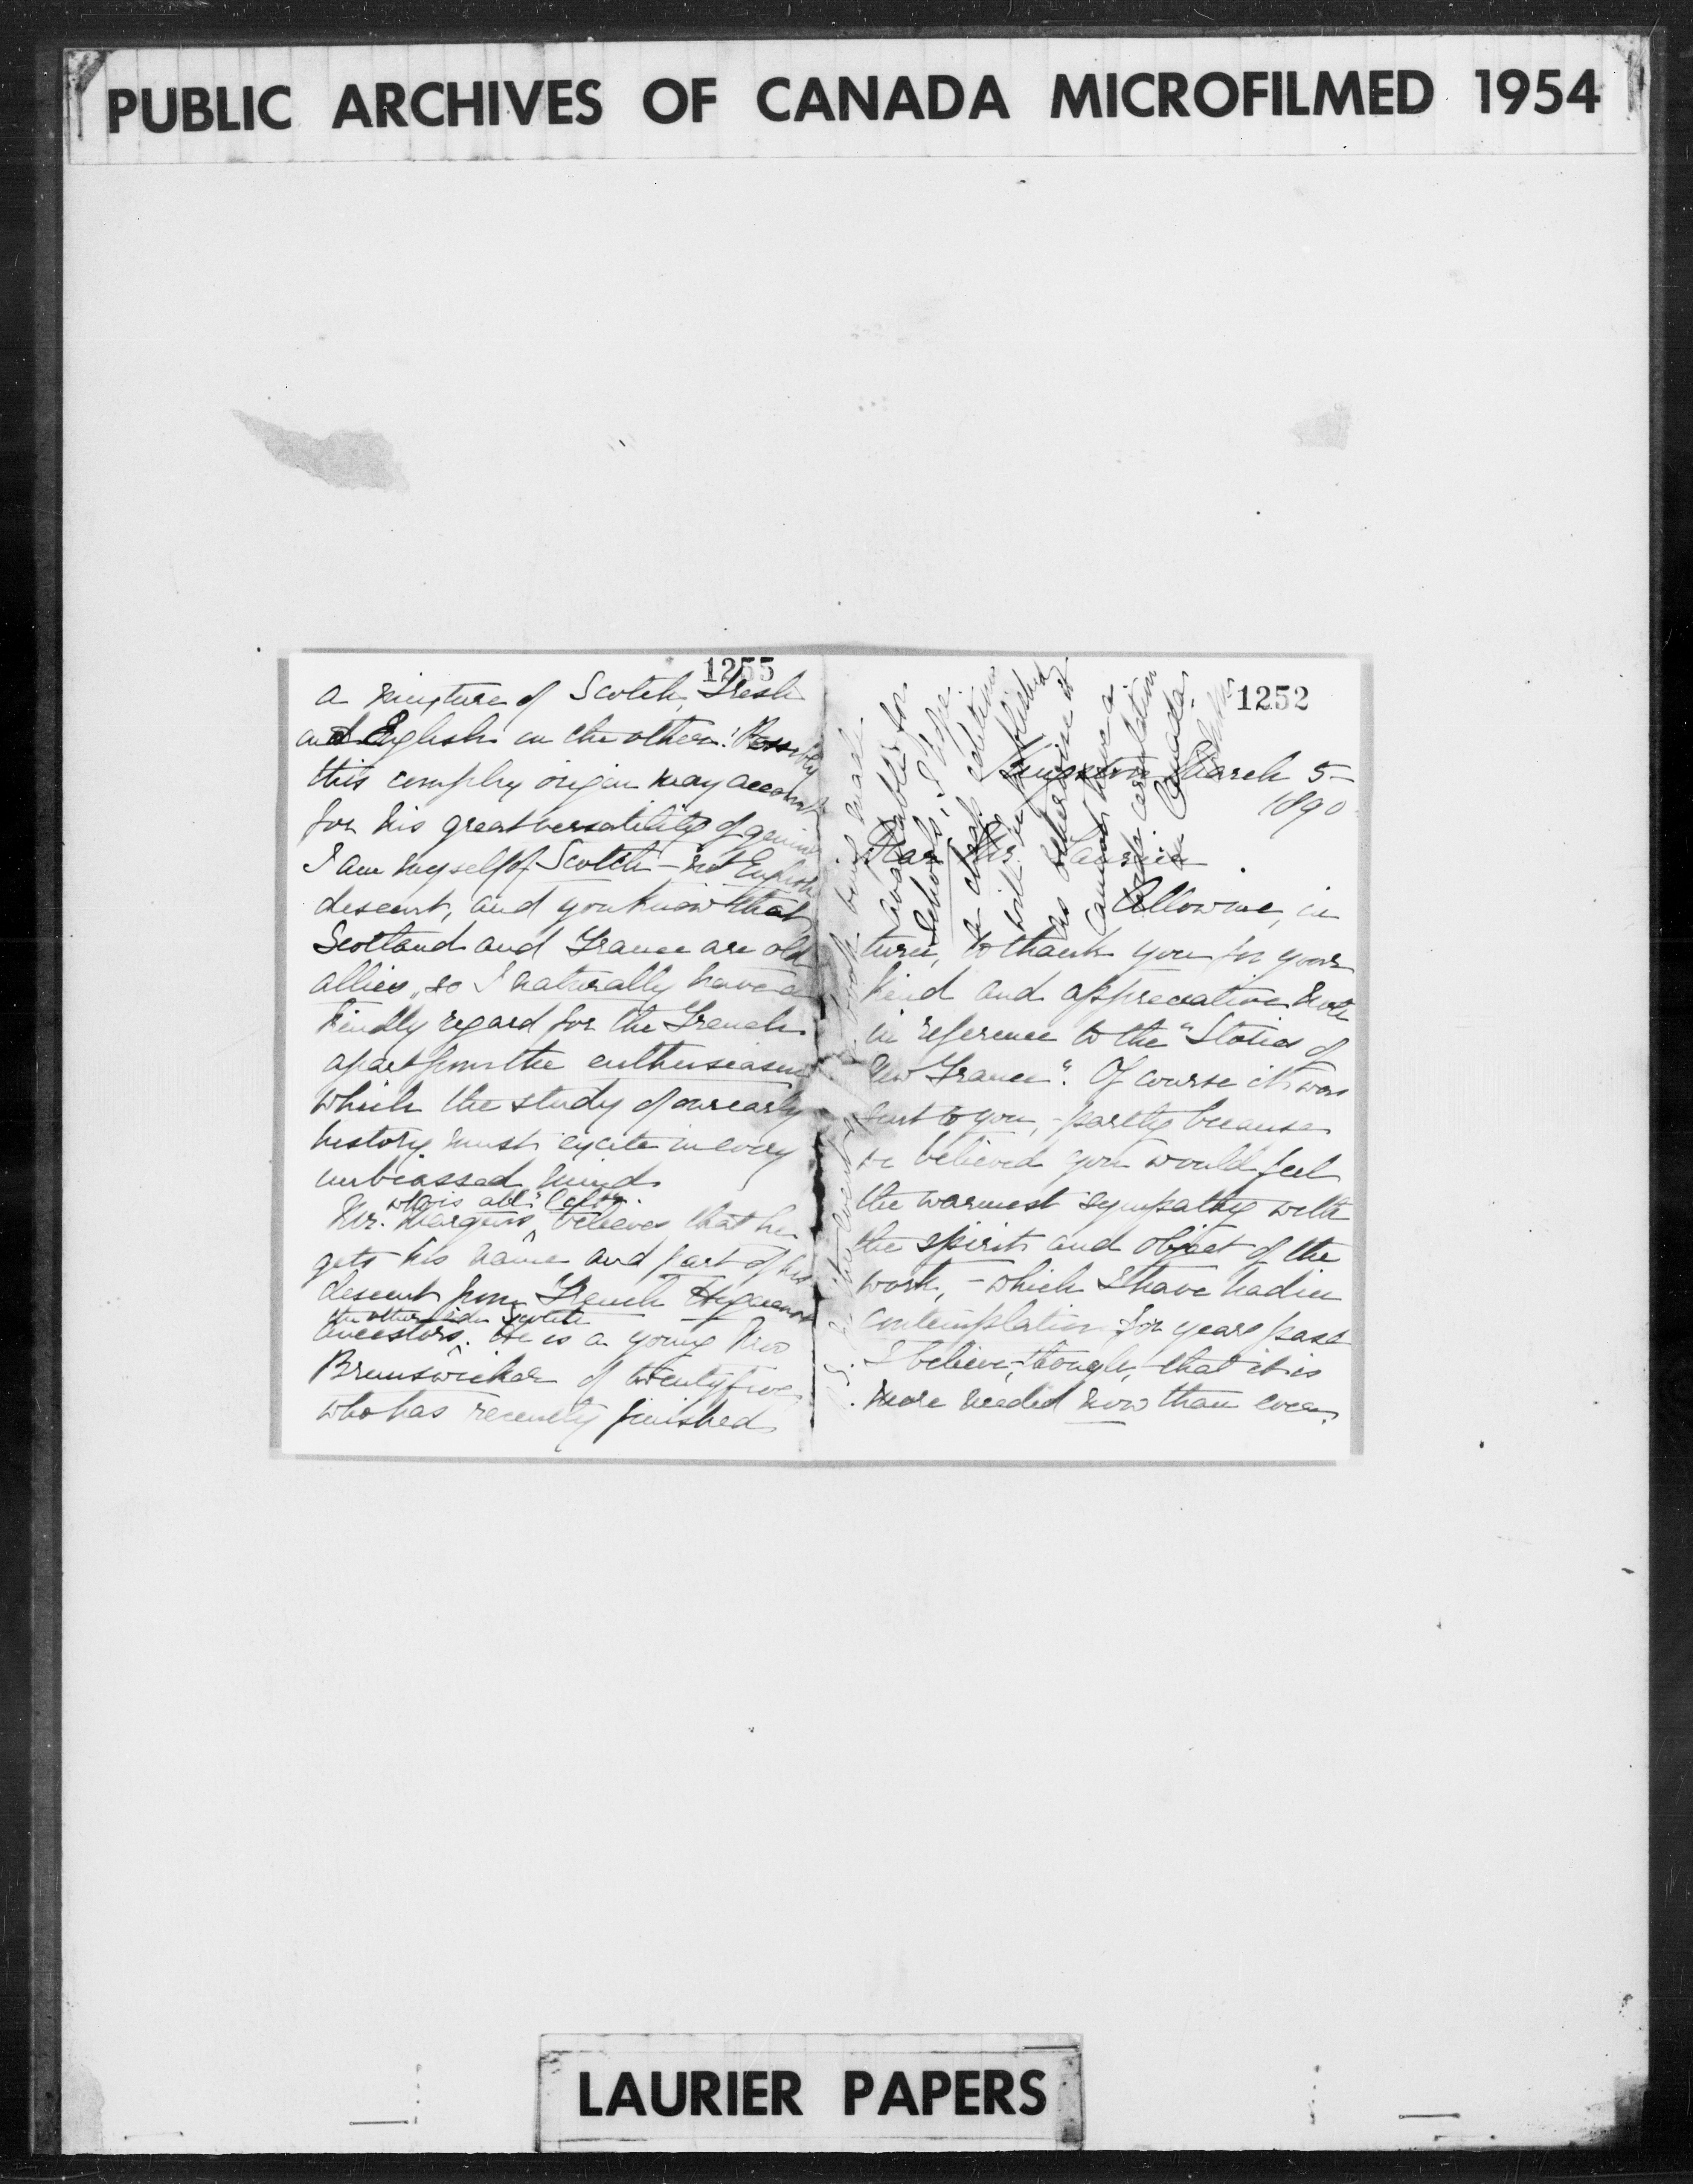 PUBLIC ARCHIVES OF CANADA MICROFILMED 1954
1255
a mixture of Scotch, Irish
and English on the other! Possibly
this complex origin may account
for his great versatility of genius
I am myself of Scotch – not English
descent, and you know that
Scotland and France are old
allies, so I naturally have a
kindly regard for the French
apart from the enthusiasm
which the study of our early
history must excite in every
unbiassed mind.
who is all "Celtic".
Mr. Marquis, believes that he
gets his name and part of his
descent from French Huguenot
the other side Scotch
ancestors. He is a young New
Brunswicker of twenty five,
who has recently finished
1252
Kingston March 5–
1890
Dear Mr Laurier
Allow me, in
turn, to thank you for your
kind and appreciative note
in reference to the "Stories of
New France". Of course it was
sent to you, – partly because
we believed you would feel
the warmest sympathy with
the spirit and object of the
work, – which I have had in
contemplation for years past
I believe, though, that it is
more needed now than ever.
book being made
available for
schools, I hope
a cheap edition
will be published
as otherwise it
cannot have a
wide circulation
in Canada.
LAURIER PAPERS